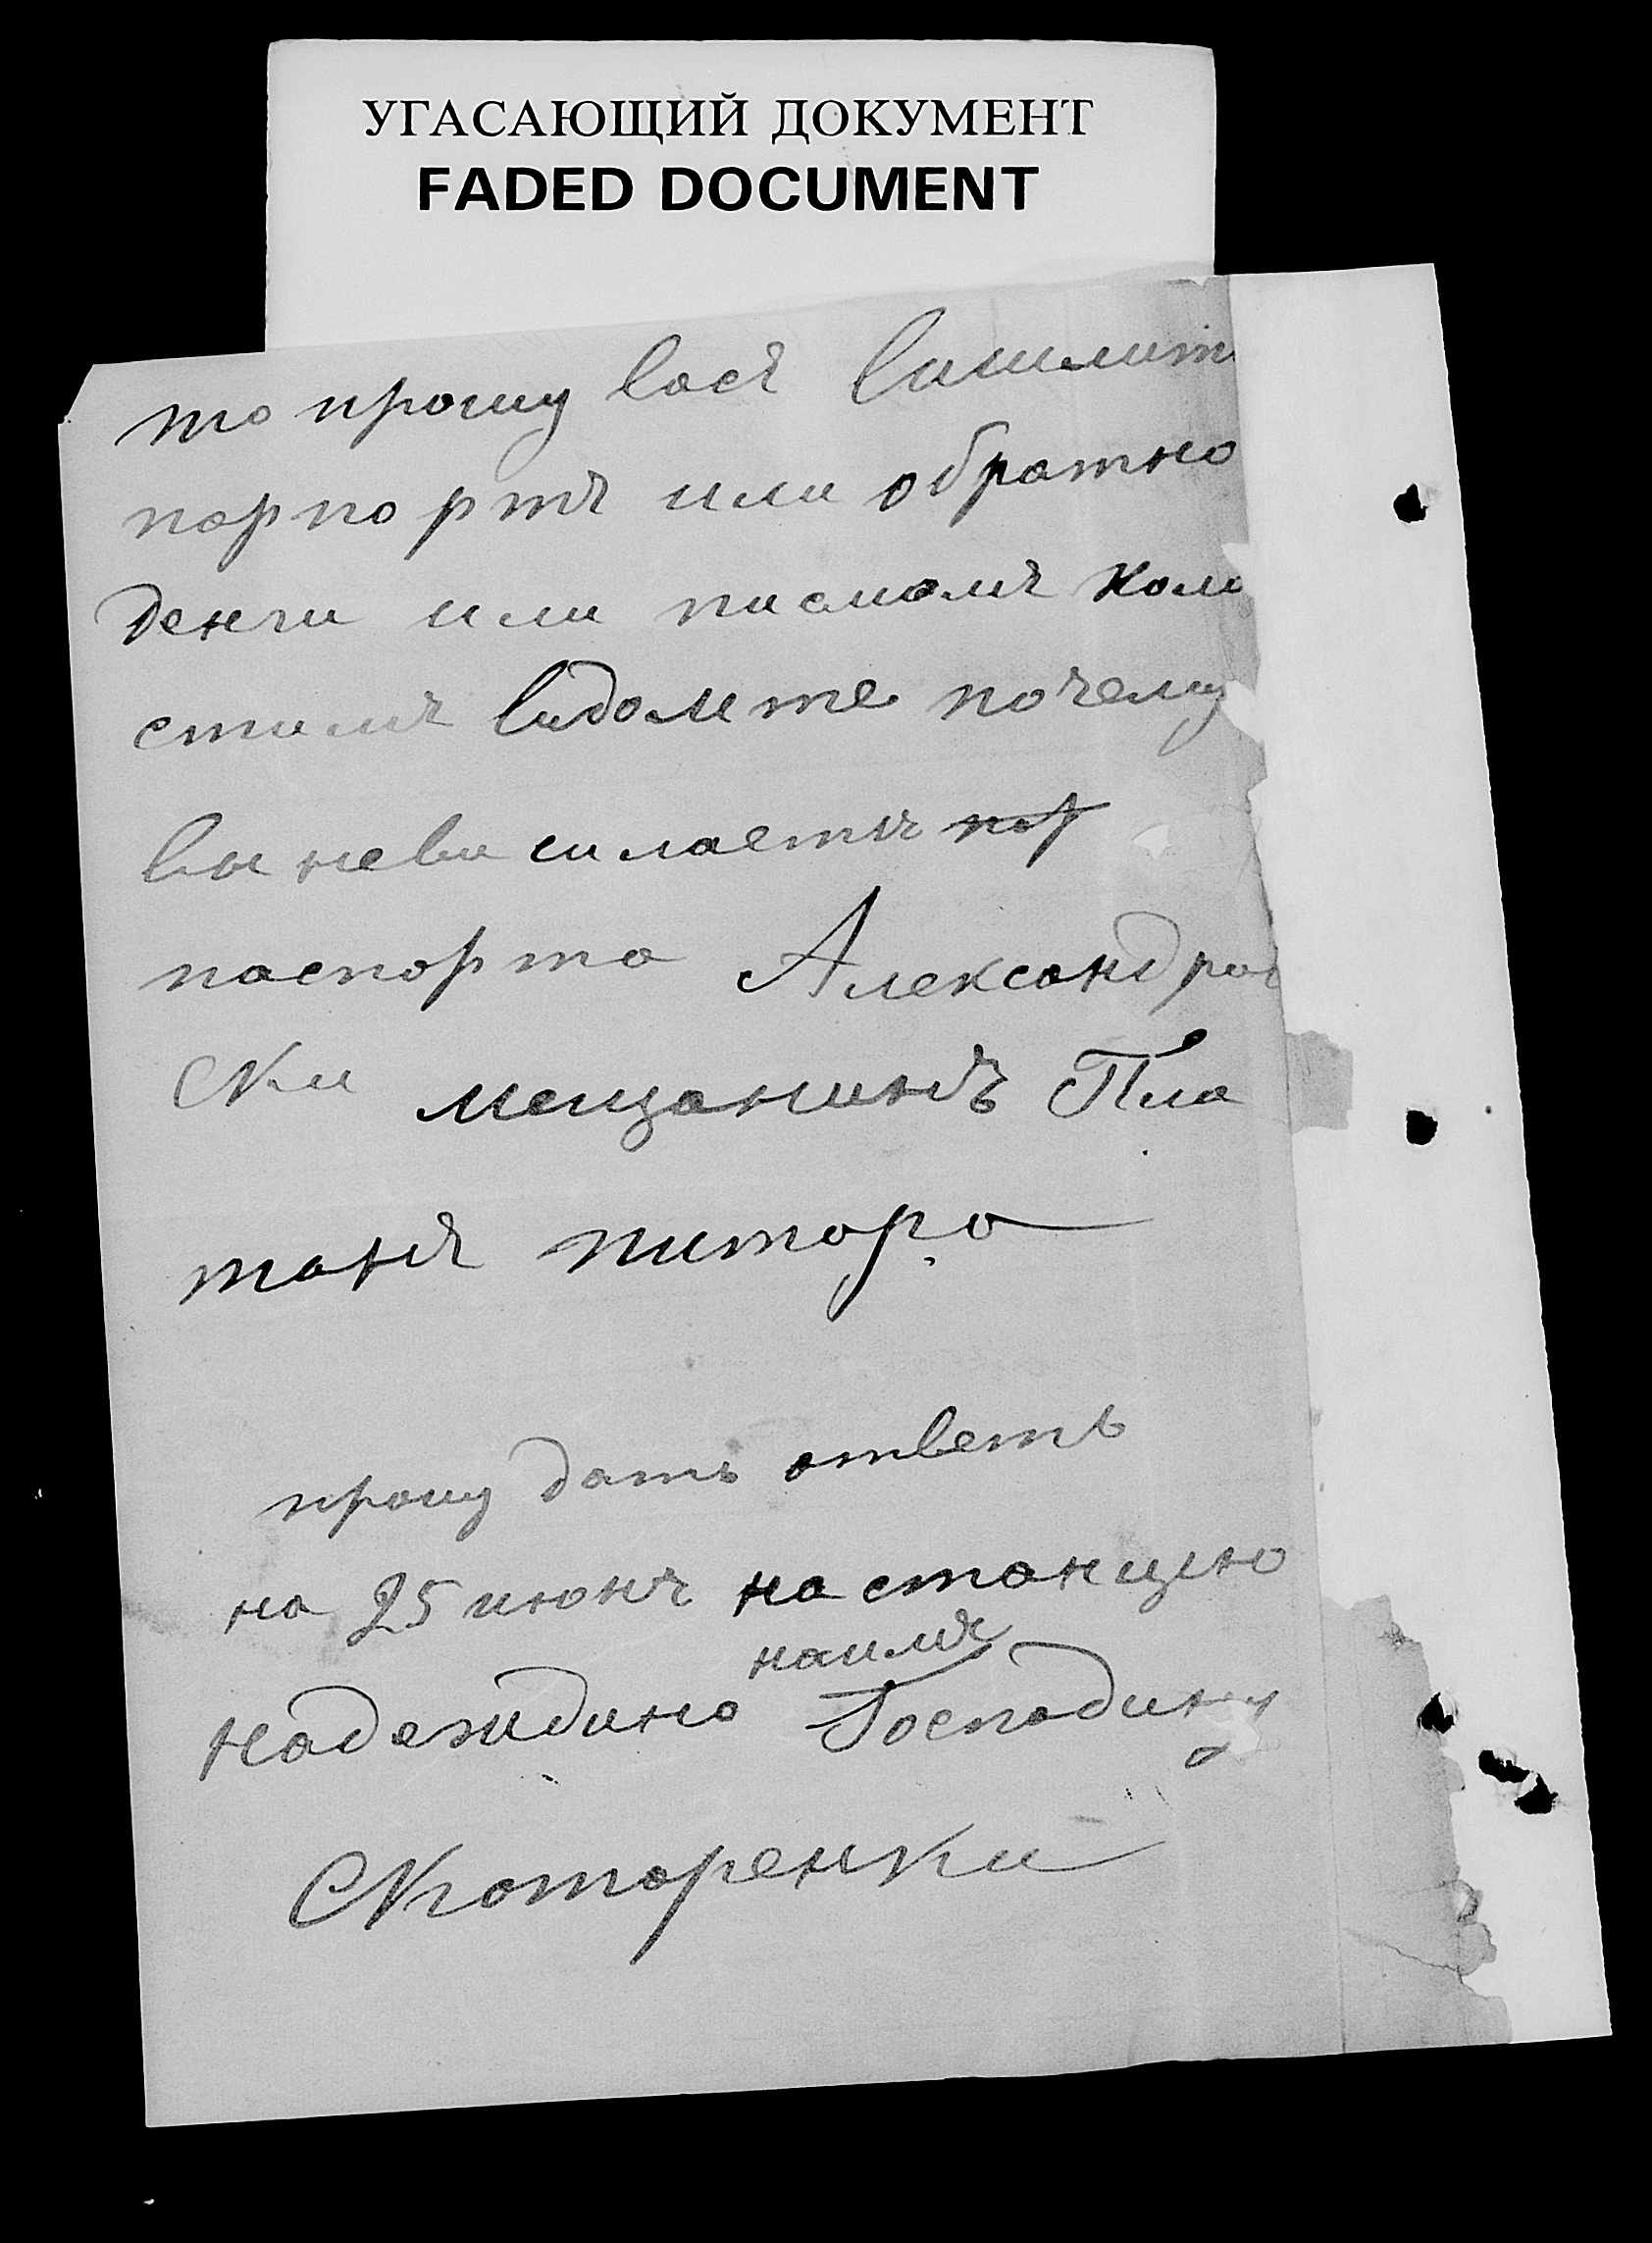 УГАСАЮЩИЙ ДОКУМЕНТ
FADED DOCUMENT
то прошу васъ вишлит
парпортъ или обратно
денги или писмомъ каки
стимъ видомете почему
ви невисилаетъ пор
паспорта Александров
ски мещанинъ Пла
тонъ питоро
прошу дать ответь
на 25 июнъ на станцию
наимя
Надеждино Господину
Скоторенки